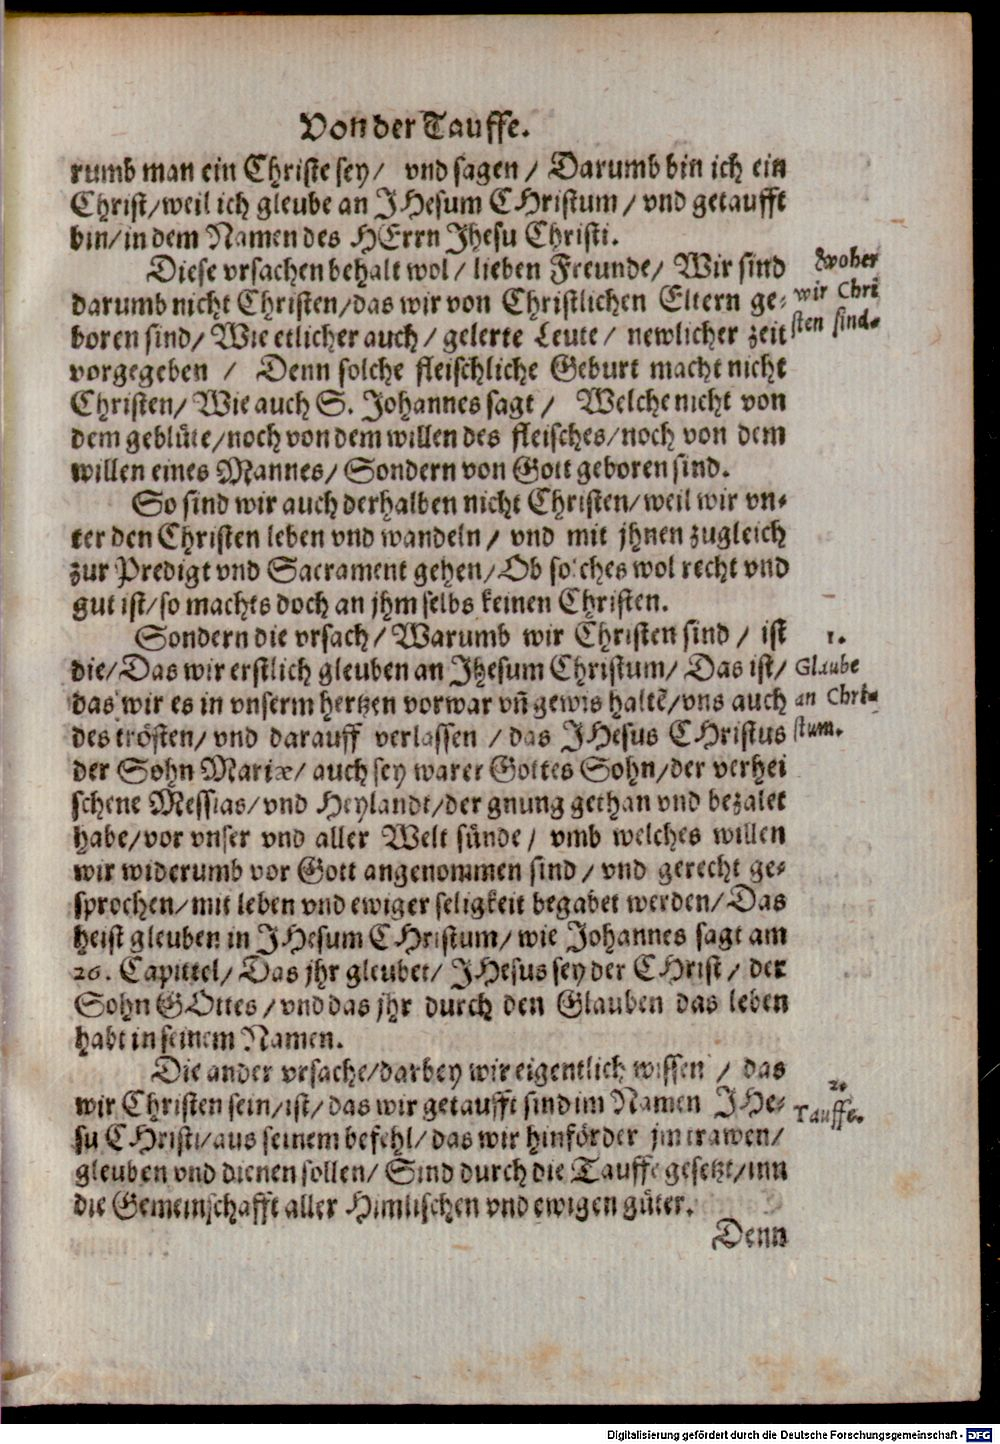 Von der Tauffe.
rumb man ein Christe sey/ vnd sagen / Darumb bin ich ein
Christ/weil ich gleube an JHesum CHristum / vnd getaufft
bin/in dem Namen des HErrn Jhesu Christi.
Diese vrsachen behalt wol/ lieben Freunde/ Wir sind
darumb nicht Christen/das wir von Christlichen Eltern ge-
boren sind/ Wie etlicher auch / gelerte Leute / newlicher zeit
vorgegeben / Denn solche fleischliche Geburt macht nicht
Christen/ Wie auch S. Johannes sagt / Welche nicht von
dem geblüte/noch von dem willen des fleisches/noch von dem
willen eines Mannes/ Sondern von Gott geboren sind.
Woher
wir Chri
sten sind.
So sind wir auch derhalben nicht Christen/weil wir vn-
ter den Christen leben vnd wandeln / vnd mit jhnen zugleich
zur Predigt vnd Sacrament gehen/Ob solches wol recht vnd
gut ist/so machts doch an jhm selbs keinen Christen.
Sondern die vrsach/ Warumb wir Christen sind / ist
die/Das wir erstlich gleuben an Jhesum Christum/ Das ist/
das wir es in vnserm hertzen vorwar vñ gewis haltē/vns auch
des trösten/ vnd darauff verlassen / das JHesus CHristus
der Sohn Mariæ/ auch sey warer Gottes Sohn/der verhei
schene Messias/vnd Heylandt/der gnung gethan vnd bezalet
habe/vor vnser vnd aller Welt sünde/ vmb welches willen
wir widerumb vor Gott angenommen sind / vnd gerecht ge-
sprochen/mit leben vnd ewiger seligkeit begabet werden/Das
heist gleuben in JHesum CHristum/ wie Johannes sagt am
20. Capittel/ Das jhr gleubet/ JHesus sey der CHrist / der
Sohn GOttes / vnd das jhr durch den Glauben das leben
habt in seinem Namen.
1.
Glaube
an Chri-
stum.
Die ander vrsache/darbey wir eigentlich wissen / das
wir Christen sein/ist/das wir getaufft sind im Namen JHe-
su CHristi/aus seinem befehl/das wir hinförder jm trawen/
gleuben vnd dienen sollen/ Sind durch die Tauffe gesetzt/inn
die Gemeinschafft aller Himlischen vnd ewigen güter.
2.
Tauffe.
Denn
Digitalisierung gefördert durch die Deutsche Forschungsgemeinschaft - DFG